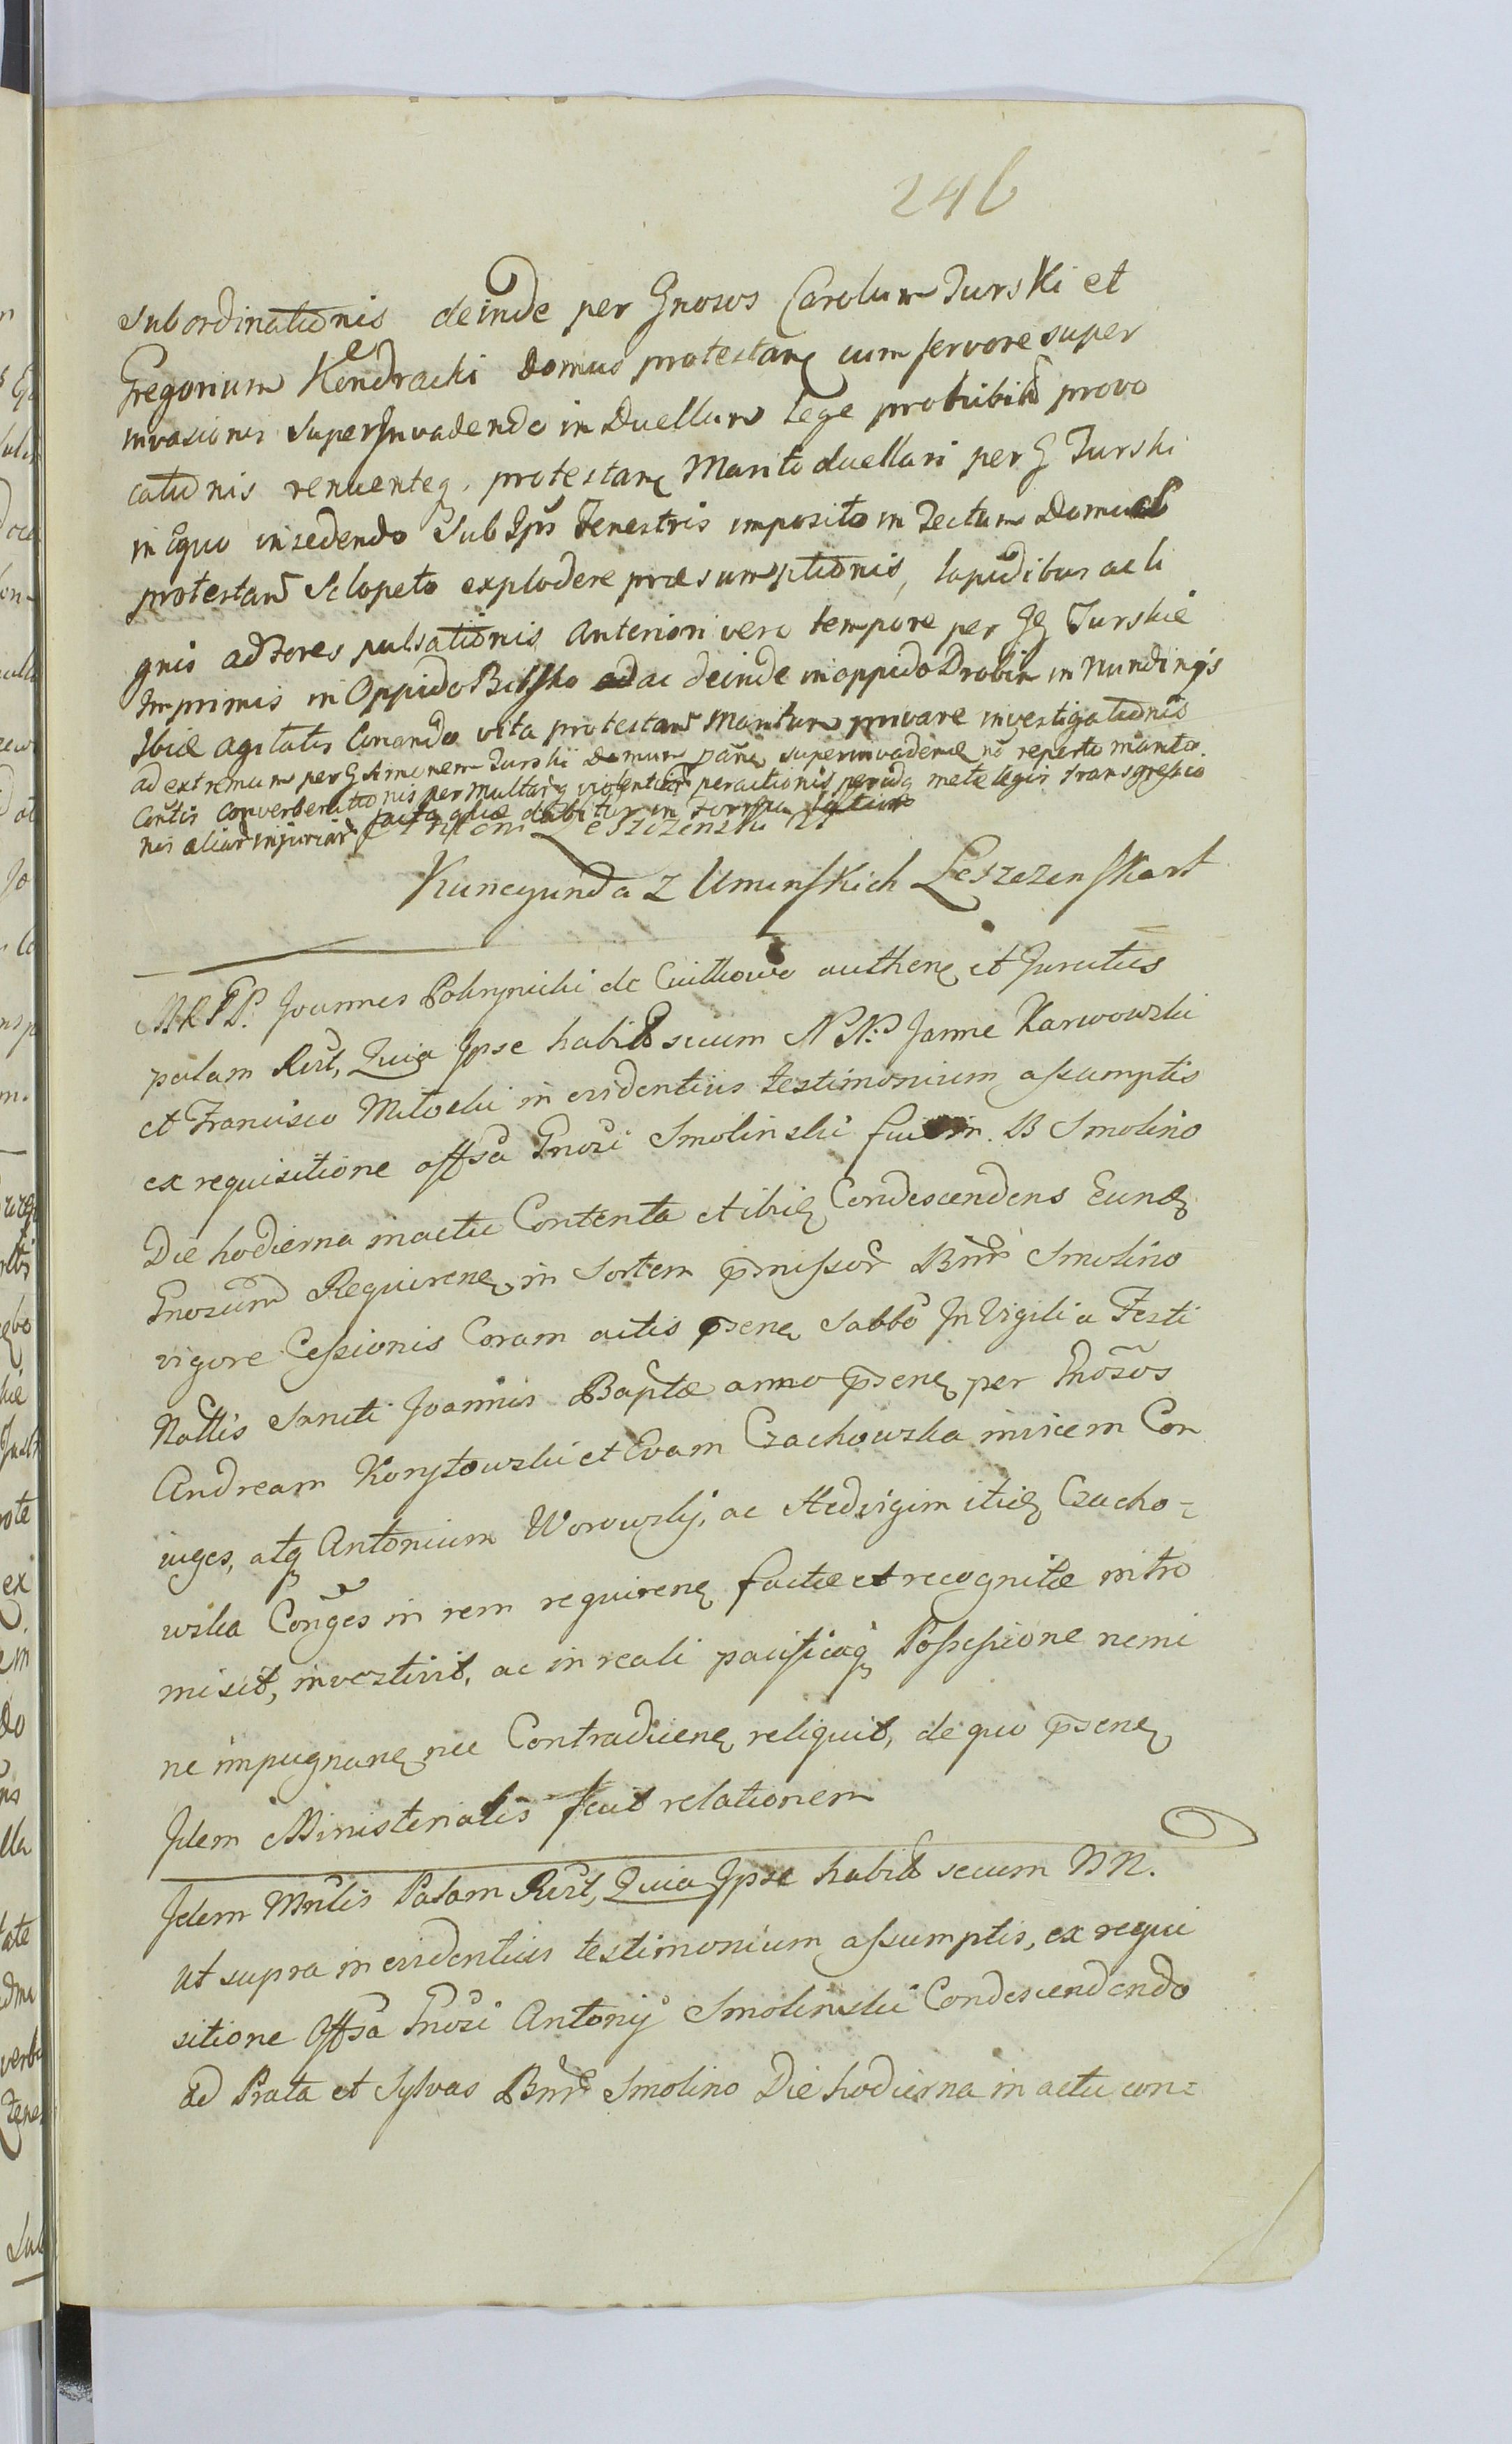 246
Subordinationis deinde per Gnosos Carolum Turski et
Gregorium Kendracki Domus protestanę cum fervore super
invasionis superinvadendo in Duellum Lege prohibitũ provo
cationis renuenteq. protestanę Marito duellari per G Turski
in Equo insedendo Sub Ips Fenestris imposito in Tectum Domus
protestan Sclopeto explodere præsumptionis, lapidibus ac li
gnis ad Fores pulsationis Anteriori vero tempore per GG Turskie
Imprimis in Oppido Bilsko ac deinde in oppido Drobin in Nundinijs
Ibiæ agitatis Conando vita protestan Maritum privare investigationis
ad extremum per G Simonem Turski Domum superinvadenæ nõ reperto marito
Converberationis per multarq violentiar peractionis metæ legis transgressio
nis aliar injuriar facta quæ dabitur in Termino latius
Leszczenski
Kunegunda z Uminskich Leszczenska
MRPP. Joannes Pokrynicki de Cuitkowo authenę et Juratus
palam Rczt, Quia Ipse habit secum NN. Janne Karwowski
et Francisco Milocki in evidentius testimonium assumptis
ex requisitione offsa Gnosi Smolinski fuit in B Smolino
Die hodierna in actu Contenta et ibię Condescendens Eundę
Gnosum Requirenę in Sortem p̃missor Bnr Smolino
vigore Cessionis Coram actis p̃senę Sabbo In Vigilia Festi
Nattis Sancti Joannis Baptæ anno p̃senę per Gnosos
Andream Korystowski et Evam Czachowska invicem Con
iuges, atq Antonium Worowski, ac Hedvigim itię Czacho=
wska Conges in rem requirenę factæ et recognitæ intro
misit, investivit, ac in reali pacificaq Possessione nemi
ne impugnanę nec Contradicenę reliquit, de quo p̃senę
Idem Ministerialis fecit relationem
Idem Mnlis Palam Rczt, Quia Ipse habit secum NN.
ut supra in evidentius testimonium assumptis, ex requi
sitione Offsa Gnosi Antonij Smolinski Condescendendo
ad Prata et Sylvas Bnr Smolino Die hodierna in actu con=